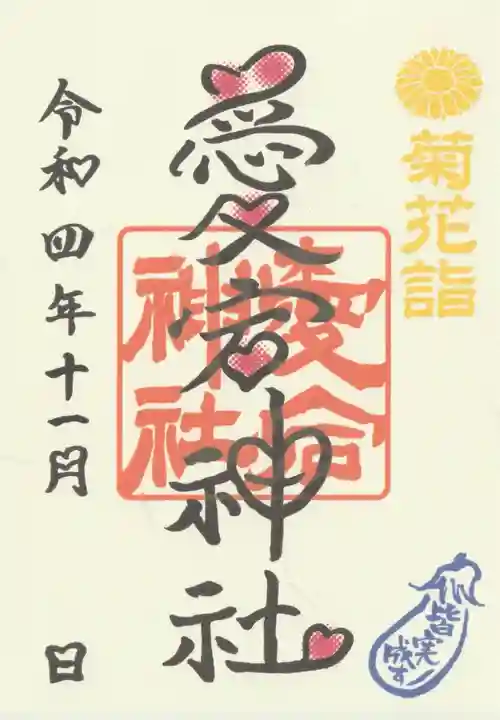 菊花詣
愛宕神社
神社
令和四年十一月 日
皆実
成す